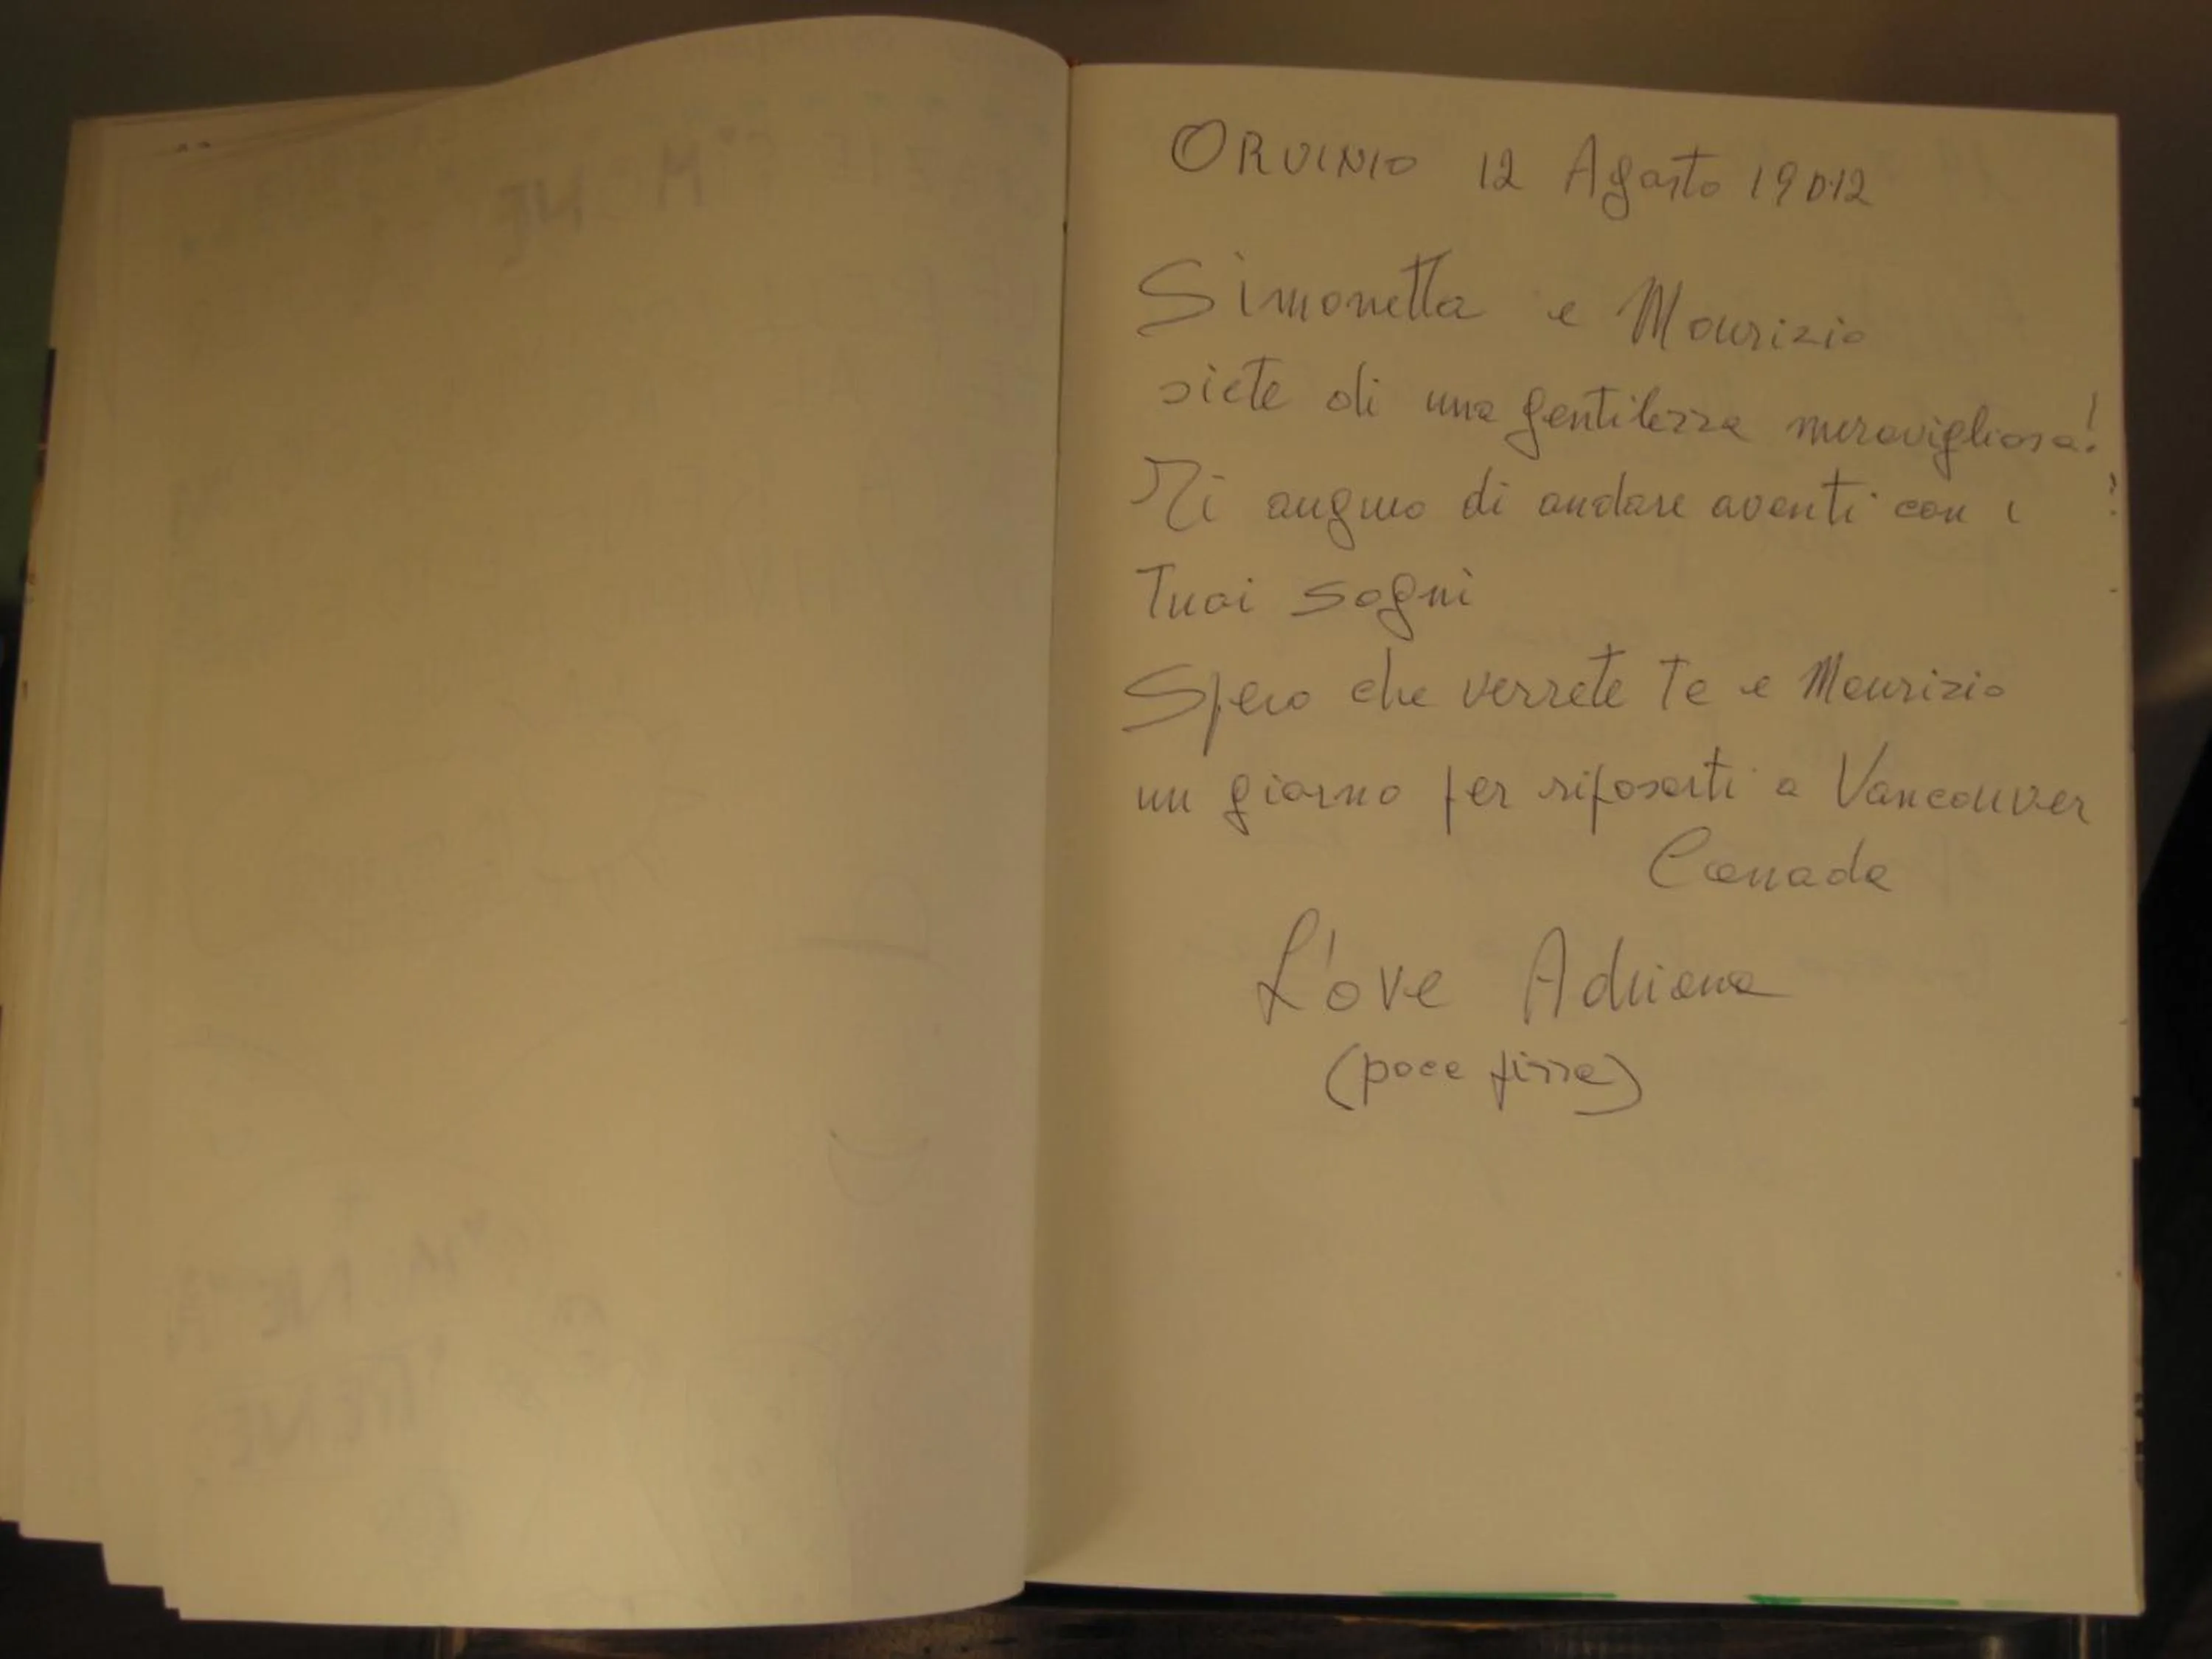 ORVINIO 12 Agosto 19012
Simonetta e Maurizio
siete di una gentilezza meravigliosa!
Mi auguro di andare avanti con i
Tuoi sogni
Spero che verrete Te e Maurizio
un giorno per riposarti a Vancouver
Canada
L'ove Adriana
(poca pizza)